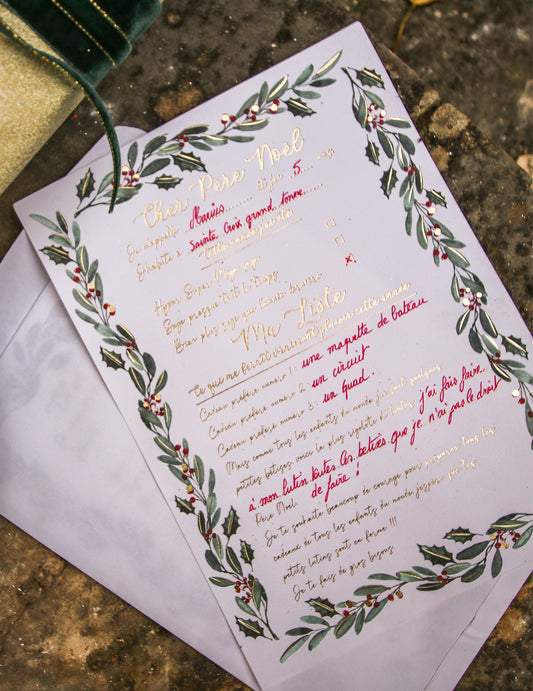 Cher Père Noël
Je m'appelle Marius et j'ai 5 ans
J'habite à Sainte Croix grand tonne
Cette année j'ai été
Hyper Super Méga sage
Sage presque tout le temps
Bien plus sage que l'année dernière
Ma Liste
Ce qui me ferait vraiment plaisir cette année
Cadeau préféré numéro 1 : une maquette de bateau
Cadeau préféré numéro 2 : un circuit
Cadeau préféré numéro 3 : un Quad.
Mais comme tous les enfants du monde j'ai fait quelques
petites bêtises voici la plus rigolote de l'année : j'ai fais faire
à mon lutin toutes les betises que je n'ai pas le droit
de faire !
Père Noël
Je te souhaite beaucoup de courage pour préparer tous les
cadeaux de tous les enfants du monde j'espère que tes
petits lutins sont en forme !!!
Je te fais de gros bisous